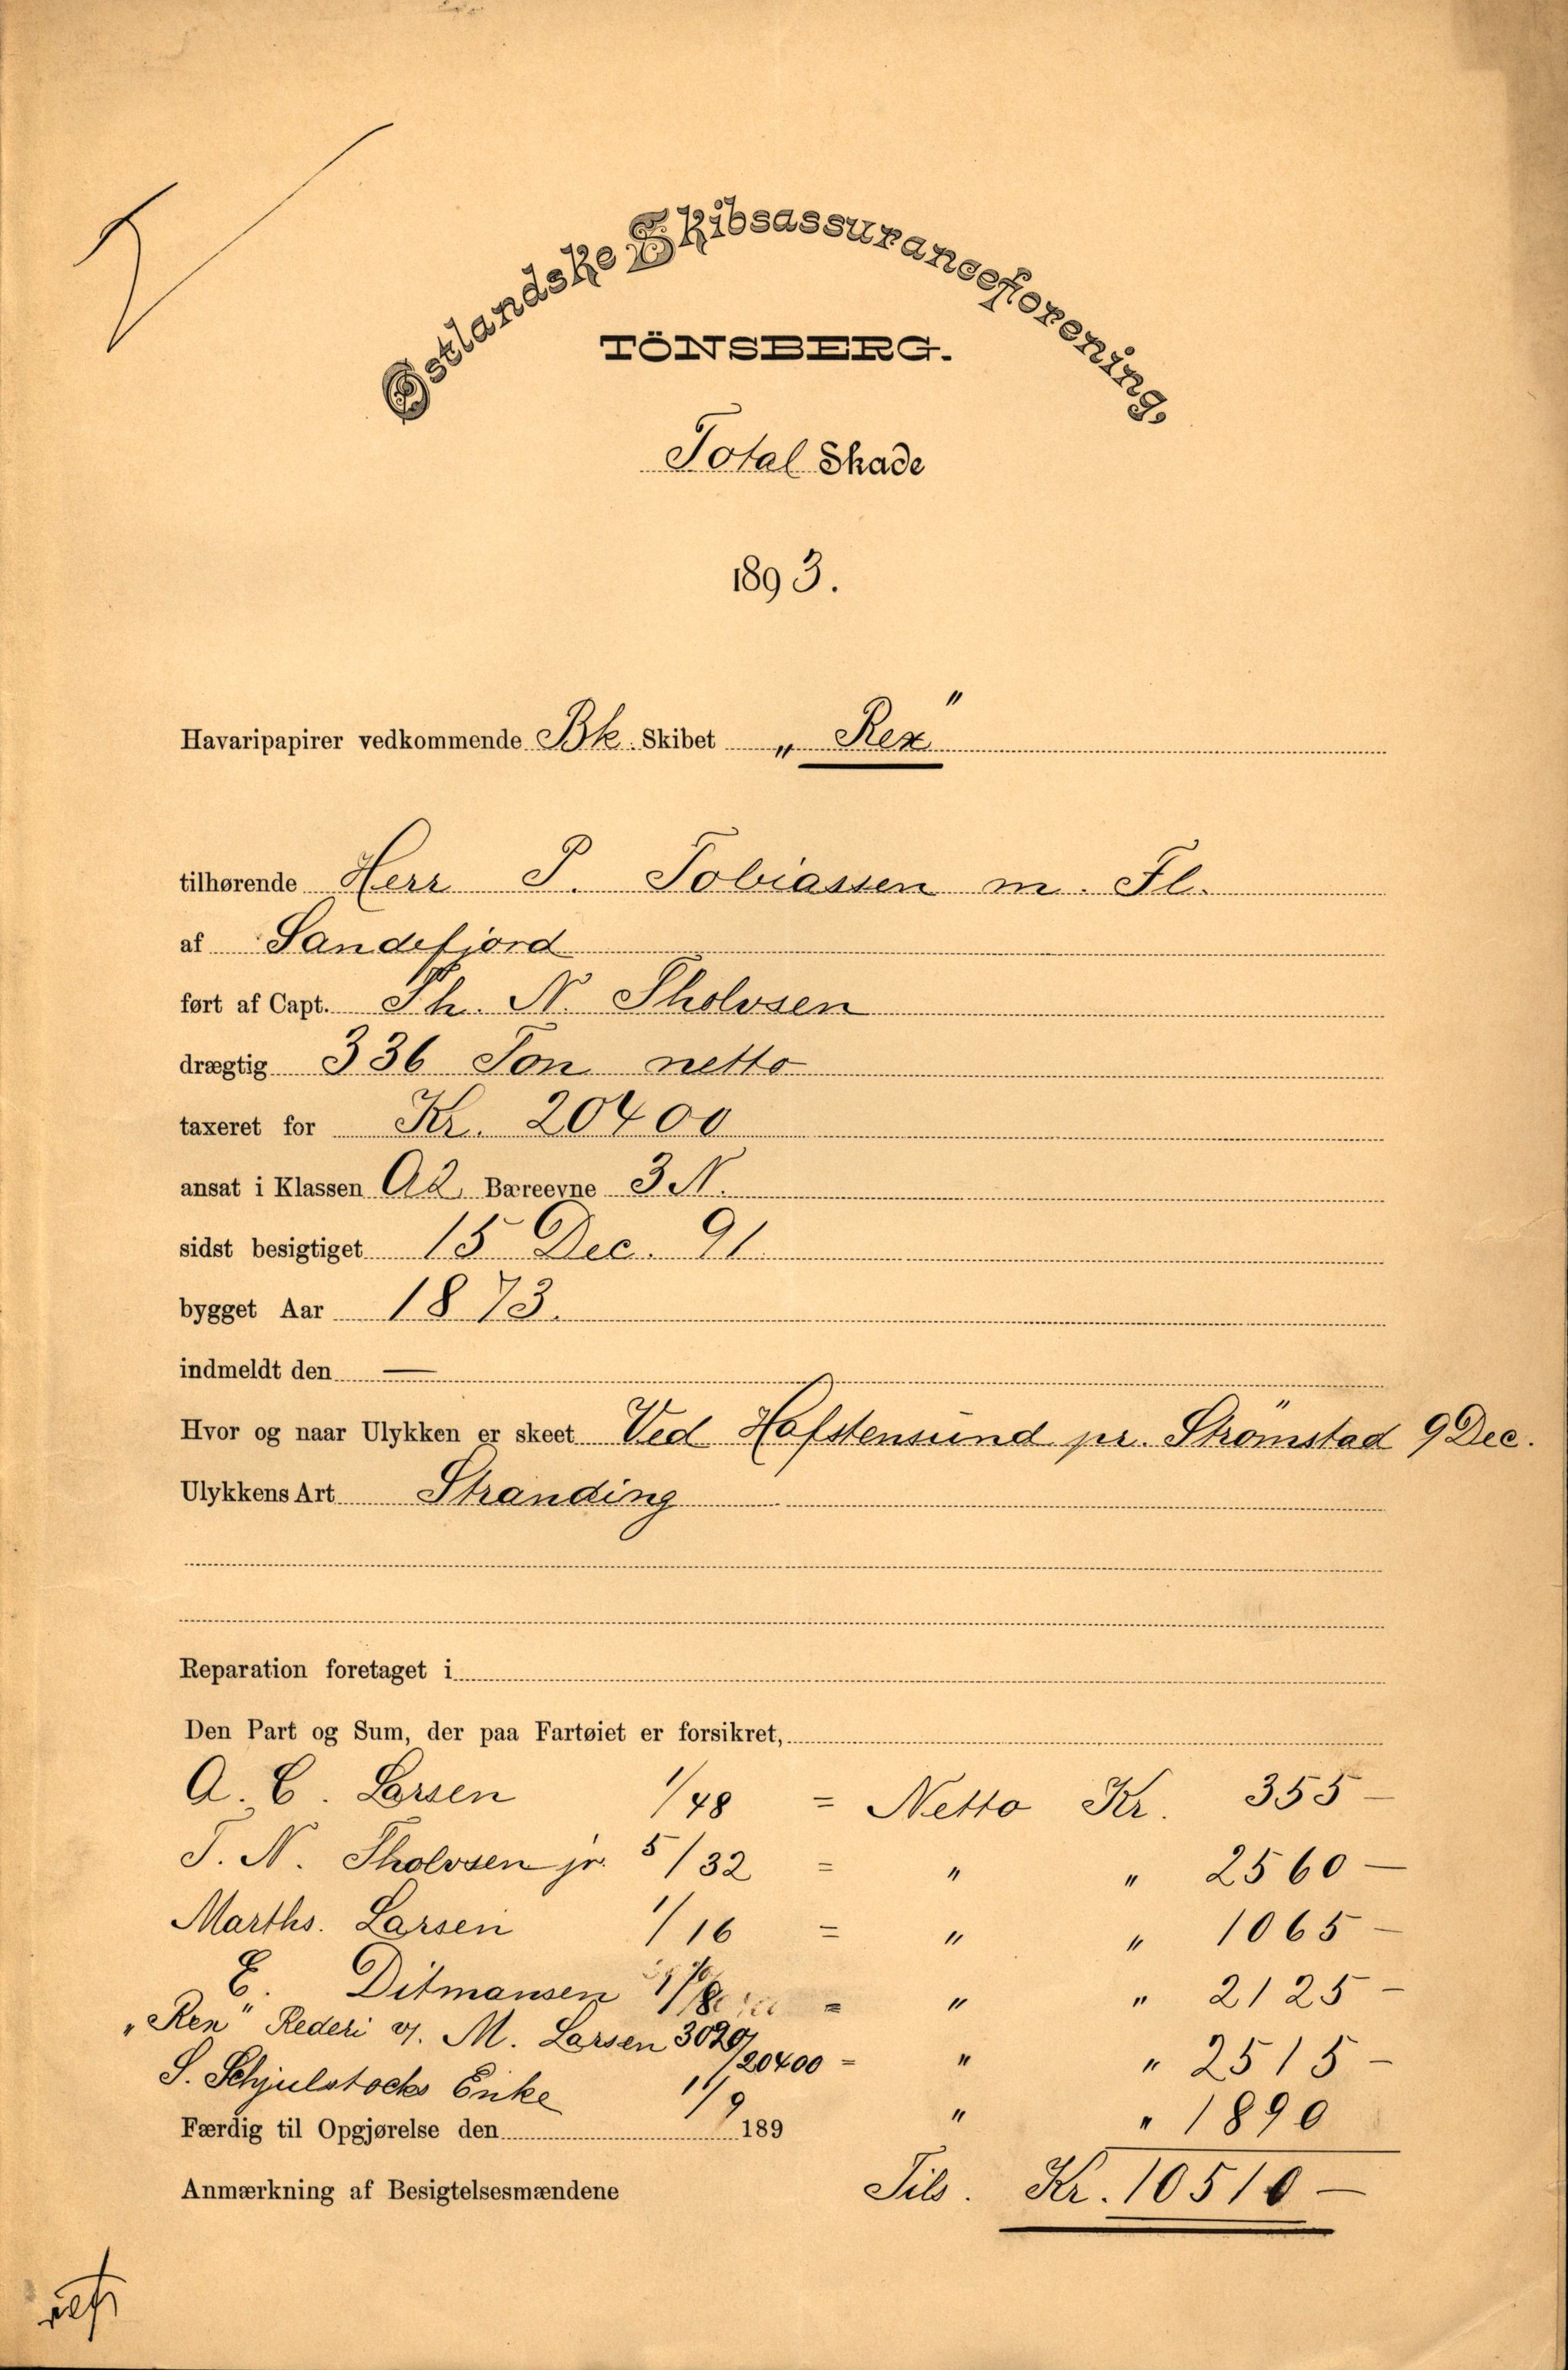 Østlandske Skibsassuranceforening,
TÖNSBERG.
Total Skade
1893.
Havaripapirer vedkommende Bk. Skibet „Rex"
tilhørende Herr P. Tobiassen m. Fl.
af Sandefjord
ført af Capt. Th. N. Tholvsen
drægtig 336 Ton netto
taxeret for Kr. 20400
ansat i Klassen A2 Bæreevne 3 N.
sidst besigtiget 15 Dec. 91
bygget Aar 1873.
indmeldt den —
Hvor og naar Ulykken er skeet Ved Hafstensund pr. Strømstad 9 Dec.
Ulykkens Art Stranding
Reparation foretaget i
Den Part og Sum, der paa Fartøiet er forsikret,
A. C. Larsen 1/48 = Netto Kr. 355 —
T. N. Tholvsen jr. 5/32 = " " 2560 —
Marths. Larsen 1/16 = " " 1065 —
E. Ditmansen 1/8 = " " 2125 —
„Rex" Rederi v. M. Larsen 3020/20400 = " " 2515 —
S. Schjulstocks Enke 1/9 " " 1890
Færdig til Opgjørelse den 189
Anmærkning af Besigtelsesmændene Tils. Kr. 10510 —